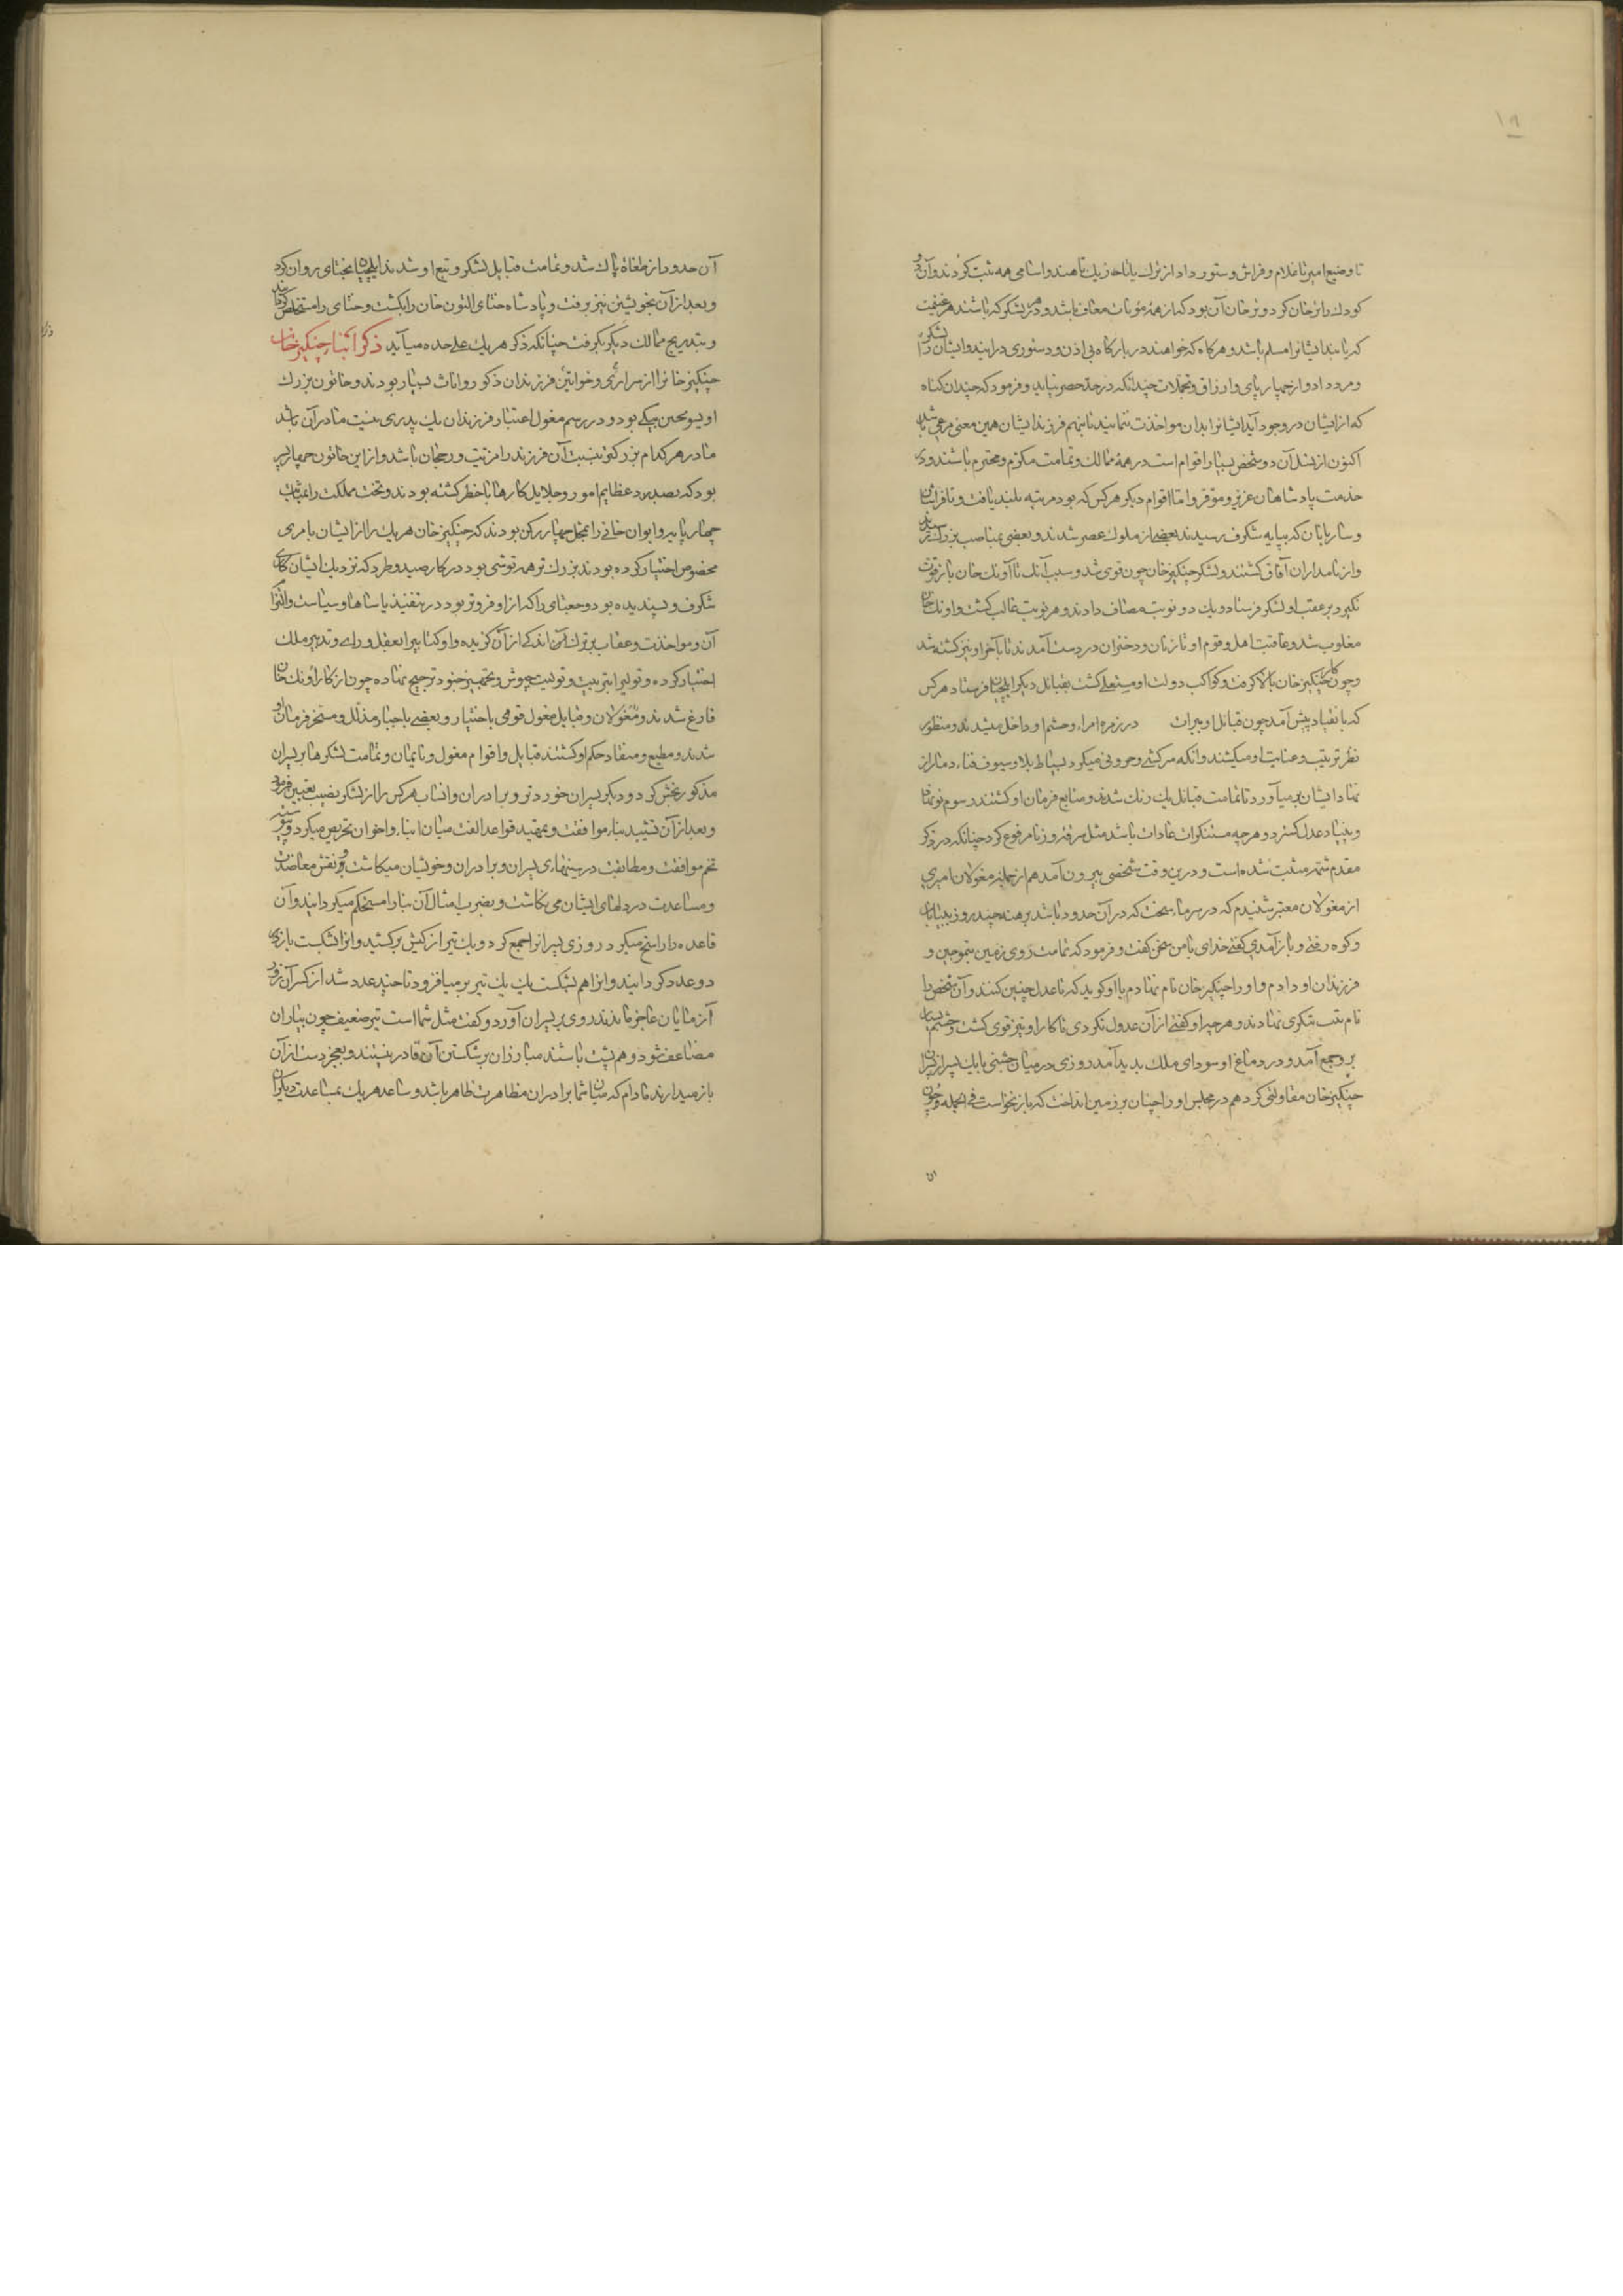 ۱۹
تا وضیع امیر تا غلام و فراش و ستور دار از ترک یا تاجیک تا هندو اسامی همه ثبت کردند و آن دو
کودک را ترخان کرد و ترخان آن بود که از همه مؤنات معاف باشد و در هر لشکر که باشند هر غنیمت
که یابند ایشانرا مسلم باشد و هرگاه که خواهند در بارگاه بی اذن و دستوری درآیند و ایشان را لشکر
و مرد داد و از چهارپای و ارزاق و تجملات چندانکه در حد حصر نیاید و فرمود که چندان گناه
که از ایشان در وجود آید ایشانرا بدان مواخذت ننمایند تا نهم فرزند ایشان همین معنی مرعی باشد
اکنون از نسل آن دو شخص بسیار اقوام است در همه ممالک و تمامت مکرم و محترم باشند و در
خدمت پادشاهان عزیز و موقر و اما اقوام دیکر هر کس که بود مرتبه بلند یافت و تا فراشان
و ساربانان که بپایه شکرف رسیدند بعضی از ملوک عصر شدند و بعضی بمناصب بزرک رسیدند
و از نامداران آفاق کشتند و لشکر چنکیز خان چون قوی شد و سبب آنک تا آونک خان باز قوت
نکیرد بر عقب او لشکر فرستاد و یک دو نوبت مصاف دادند و هر نوبت غالب کشت و اونک خان
مغلوب شد و عاقبت اهل و قوم او تا زنان و دختران در دست آمدند تا بآخر او نیز کشته شد
و چون کار چنکیز خان بالا کرفت و کواکب دولت او مستعلی کشت بقبائل دیکر ایلچیان فرستاد هر کس
که بانقیاد پیش آمد چون قبائل اویرات در زمره امراء و حشم او داخل میشدند و منظور
نظر تربیت و عنایت او میکشتند و آنکه سرکشی و حرونی میکرد بسیاط بلا و سیوف فناء دمار از
نهاد ایشان بر میآورد تا تمامت قبائل یک رنک شدند و متابع فرمان او کشتند رسوم نو نهاد
و بنیاد عدل کسترد و هرچه مستنکرات عادات باشد مثل سرقه و زنا مرفوع کرد چنانکه در ذکر
مقدم شمه مثبت شده است و درین وقت شخصی بیرون آمد هم از جمله مغولان امیری
از مغولان معتبر شنیدم که در سرماء سخت که در آن حدود باشد برهنه چند روز ببیابان
و کوه رفتی و باز آمدی کفتی خدای با من سخن کفت و فرمود که تمامت روی زمین بتموجین و
فرزندان او دادم و او را چنکیز خان نام نهادم با او کوید که تا عدل چنین کنند و آن شخص را
نام تب تنکری نهادند و هر چه او کفتی از آن عدول نکردی تا کار او نیز قوی کشت و حشم بسیار
برو جمع آمد و در دماغ او سودای ملک بدید آمد روزی در میان جشنی با یک پسر از پسران
چنکیز خان مقاولتی کرد هم در مجلس او را چنان بر زمین انداخت که باز نخواست فی الجمله و چون
آن حدود از طغاة پاک شد و تمامت قبایل لشکر و تبع او شدند ایلچیان بختای روان کرد
و بعد از آن بخویشتن نیز برفت و پادشاه ختای التون خان را بکشت و ختای را مستخلص کردانید
و بتدریج ممالک دیکر بکرفت چنانکه ذکر هر یک علی حده میآید ذکر ابناء چنکیز خان
چنکیز خانرا از سراری و خواتین فرزندان ذکور و اناث بسیار بودند و خاتون بزرک
او یسونجین بیکی بود و در رسم مغول اعتبار فرزندان یک پدری بنسبت مادر آن باشد
مادر هر کدام بزرکتر بنسبت آن فرزند را مزیت و رجحان باشد و از این خاتون چهار پسر
بود که بصدد عظایم امور و جلایل کارها با خطر کشته بودند و تخت مملکت را بمثابت
چهار پایه و ایوان خانی را بمحل چهار رکن بودند که چنکیز خان هر یک را از ایشان بامری
مخصوص اختیار کرده بودند بزرک تر همه توشی بود در کار صید و طرد که نزدیک ایشان کاری
شکرف و پسندیده بود و جغتای را که از او فروتر بود در تنفیذ یاساها و سیاست و التزام
آن و مواخذت و عقاب بر ترک آن اندکی از آن کزیده و اوکتای را بعقل و رای و تدبیر ملک
اختیار کرده و تولی را بترتیب و تولیت جیوش و تجهیز جنود ترجیح نهاده چون از کار اونک خان
فارغ شدند و مغولان و قبایل مغول قومی باختیار و بعضی باجبار مذلل و مسخر فرمان او
شدند و مطیع و منقاد حکم او کشتند قبایل و اقوام مغول و نایمان و تمامت لشکرها بر پسران
مذکور بخش کرد و دیکر پسران خوردتر و برادران و انساب هر کس را از لشکر نصیب تعیین فرمود
و بعد از آن تشیید بناء موافقت و تمهید قواعد الفت میان ابناء و اخوان تحریص میکرد و پیوسته
تخم موافقت و مطابقت در سینهای پسران و برادران و خویشان میکاشت و نقش معاضدت
و مساعدت در دلهای ایشان می نکاشت و بضرب امثال آن بنا را مستحکم میکردانید و آن
قاعده را راسخ میکرد روزی پسرانرا جمع کرد و یک تیر از کیش برکشید و آنرا بشکست باز
دو عدد کردانید و آنرا هم بشکست یک یک تیر بر میافزود تا چند عدد شد از کسر آن زور
آزمایان عاجز ماندند روی بر پسران آورد و کفت مثل شما است تیر ضعیف چون بیاران
مضاعف شود و هم پشت باشند مبارزان بر شکستن آن قادر نیستند و بعجز دست از آن
باز میدارند مادام که میان شما برادران مظاهرت ظاهر باشد و ساعد هر یک بمساعدت دیکران